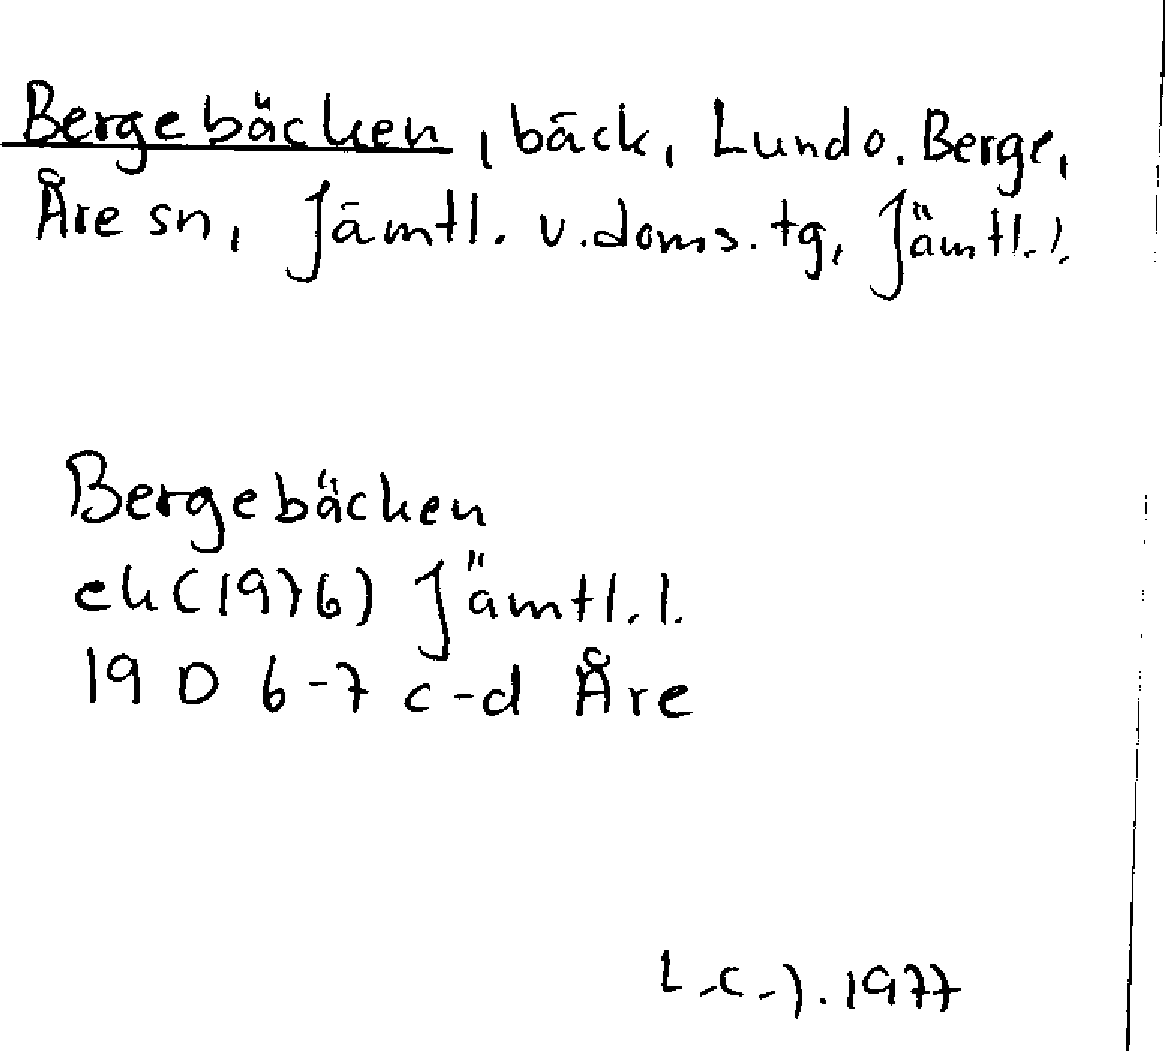 Bergebäcken, bäck, Lund o. Berge,
Åre sn, Jämtl. v. doms. tg, Jämtl. l.
Bergebäcken
ek (1976) Jämtl. l.
19 D 6-7 c-d Åre
1977